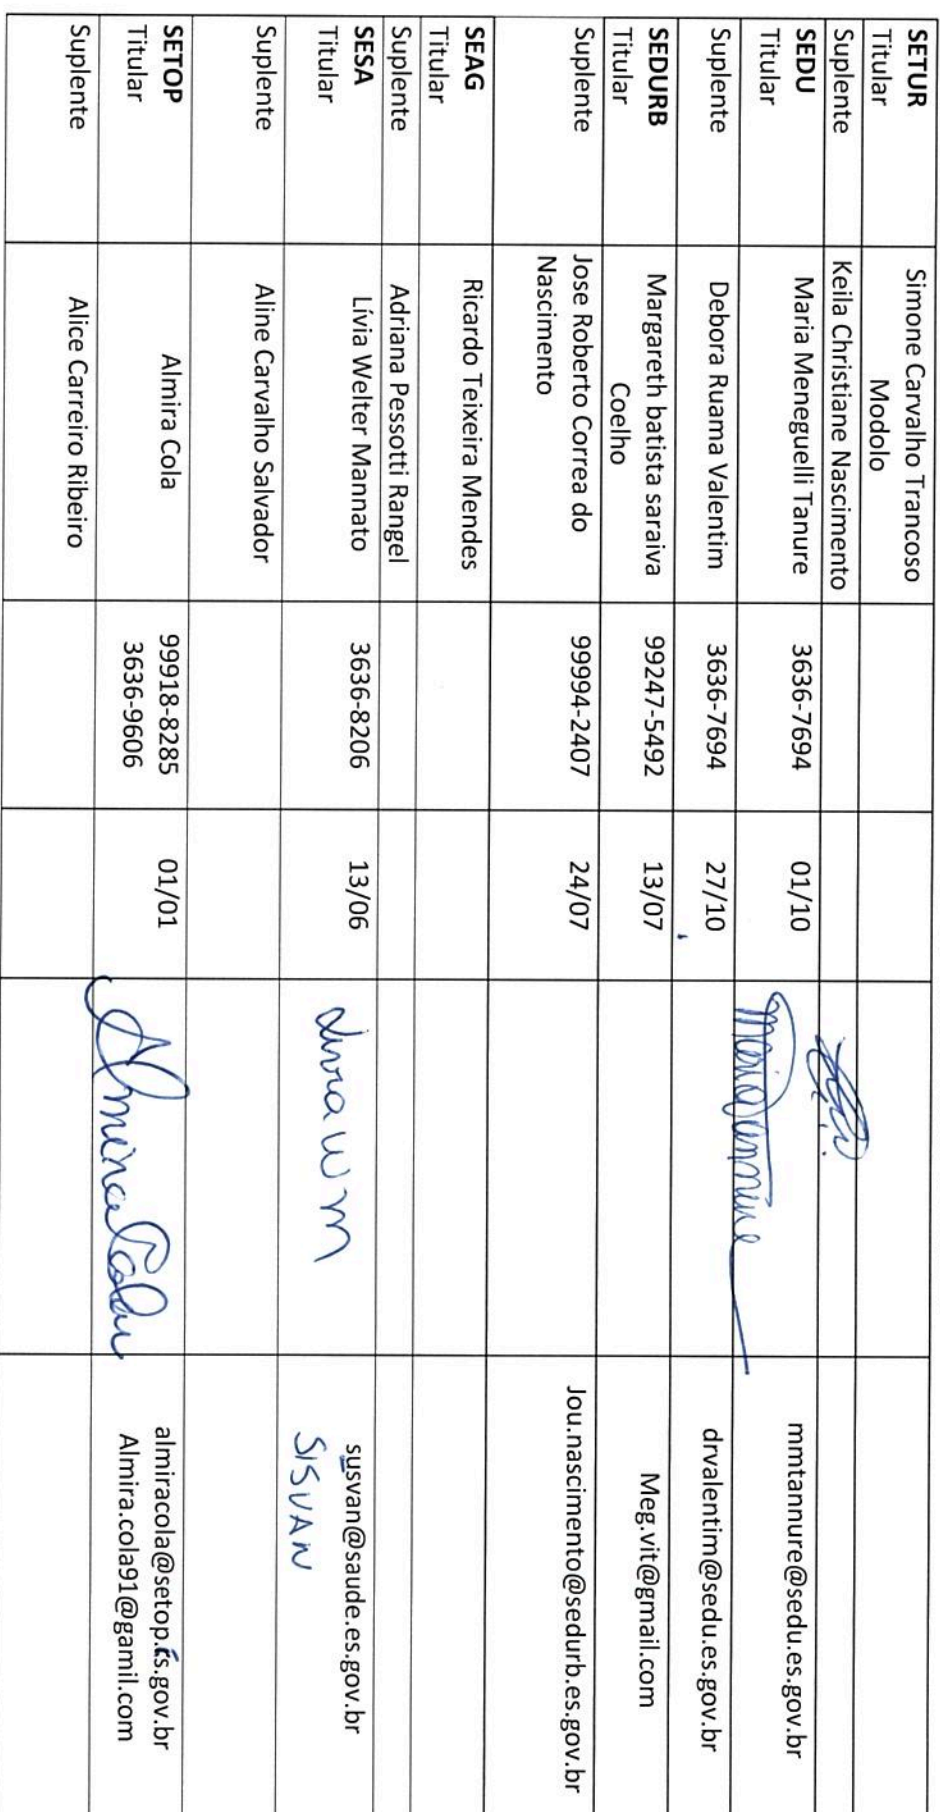 SETUR
Titular
Simone Carvalho Trancoso
Modolo
Suplente
Keila Christiane Nascimento
SEDU
Titular
Maria Meneguelli Tanure
3636-7694
01/10
mmtannure@sedu.es.gov.br
Suplente
Debora Ruama Valentim
3636-7694
27/10
drvalentim@sedu.es.gov.br
SEDURB
Titular
Margareth batista saraiva
Coelho
99247-5492
13/07
Meg.vit@gmail.com
Suplente
Jose Roberto Correa do
Nascimento
99994-2407
24/07
Jou.nascimento@sedurb.es.gov.br
SEAG
Titular
Ricardo Teixeira Mendes
Suplente
Adriana Pessotti Rangel
SESA
Titular
Lívia Welter Mannato
3636-8206
13/06
Livia W M
susvan@saude.es.gov.br
SISVAN
Suplente
Aline Carvalho Salvador
SETOP
Titular
Almira Cola
99918-8285
3636-9606
01/01
Almira Cola
almiracola@setop.es.gov.br
Almira.cola91@gamil.com
Suplente
Alice Carreiro Ribeiro